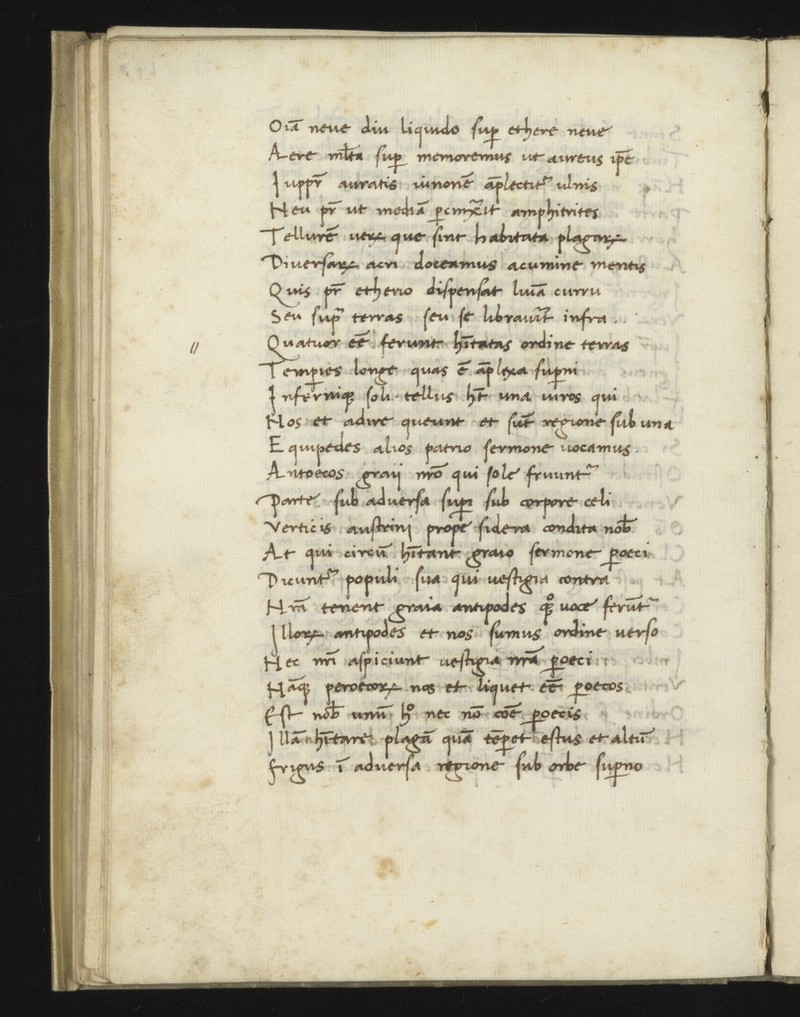 Oīa neue diu liquido suꝑ ethere neue
Aere ml̄ta suꝑ memoremus ut aureus ip̄e
Iuppr̄ auratis iunonē āplectit᷑ ulnis
Neu pr̄ ut mediā amphitrites
Tellurē ueꝝ que sint habitata plagaꝝ
Diuersaꝝ acri doceamus acumine mentis
Quis pr̄ etherio dispensat curru
Seu sup᷑ terras seu se infra .
Quatuor eē̄ ferunt hītatas ordine terras
Temꝑies longe quas ē āplexa suꝑni
Inferniqꝫ soli tellus ht̄ una uiros qui
Nos et adire queunt et sūt regione sub una
Equipedes alios patrio sermone uocamus .
Antoecos graii nr̄o qui sole fruunt᷑
Parte sub aduersa suꝑi sub corpore celi
Verticis austrini prope sidera condita nob̄
At qui circū hītant graio sermone ꝑoeci
Dicunt᷑ populi sua qui uestigia contra
Nr̄a tenent graia antipodes qꝫ uoce ferūt᷑
Illoꝝ antipodes et nos sumus ordine uerso
Nec nr̄i aspiciunt uestigia nr̄a ꝑoeci
Nāqꝫ peroecoꝝ nos et liquet eē̄ ꝑoecos
Est nob̄ unū nec nō coē̄ ꝑoecis
Illā hītare plagā quā tēꝑet estus et altū
Frigus ī aduersa regione sub orbe suꝑno